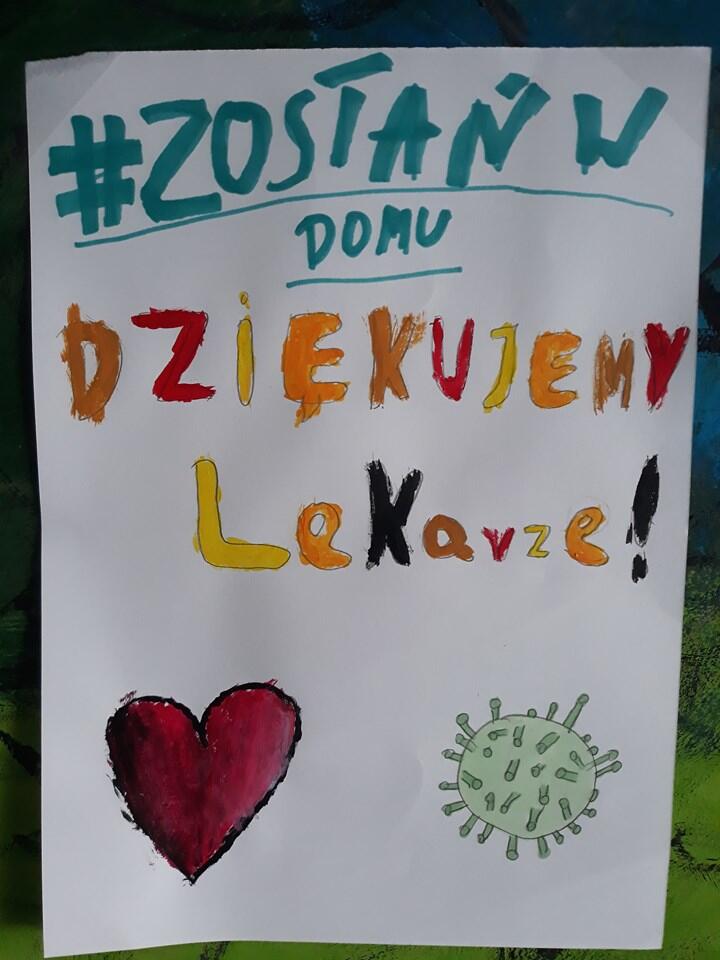 #ZOSTAŃ W
DOMU
DZiĘKUJEMY
LeKarze!